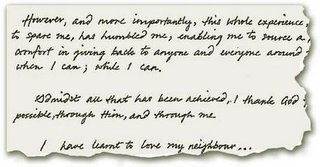 However, and more importantly, this whole experience,
to spare me, has humbled me, enabling me to source a
comfort in giving back to anyone and everyone around
when I can; while I can.
Admidst all that has been achieved, I thank God
possible, through Him, and through me
I have learnt to love my neighbour...